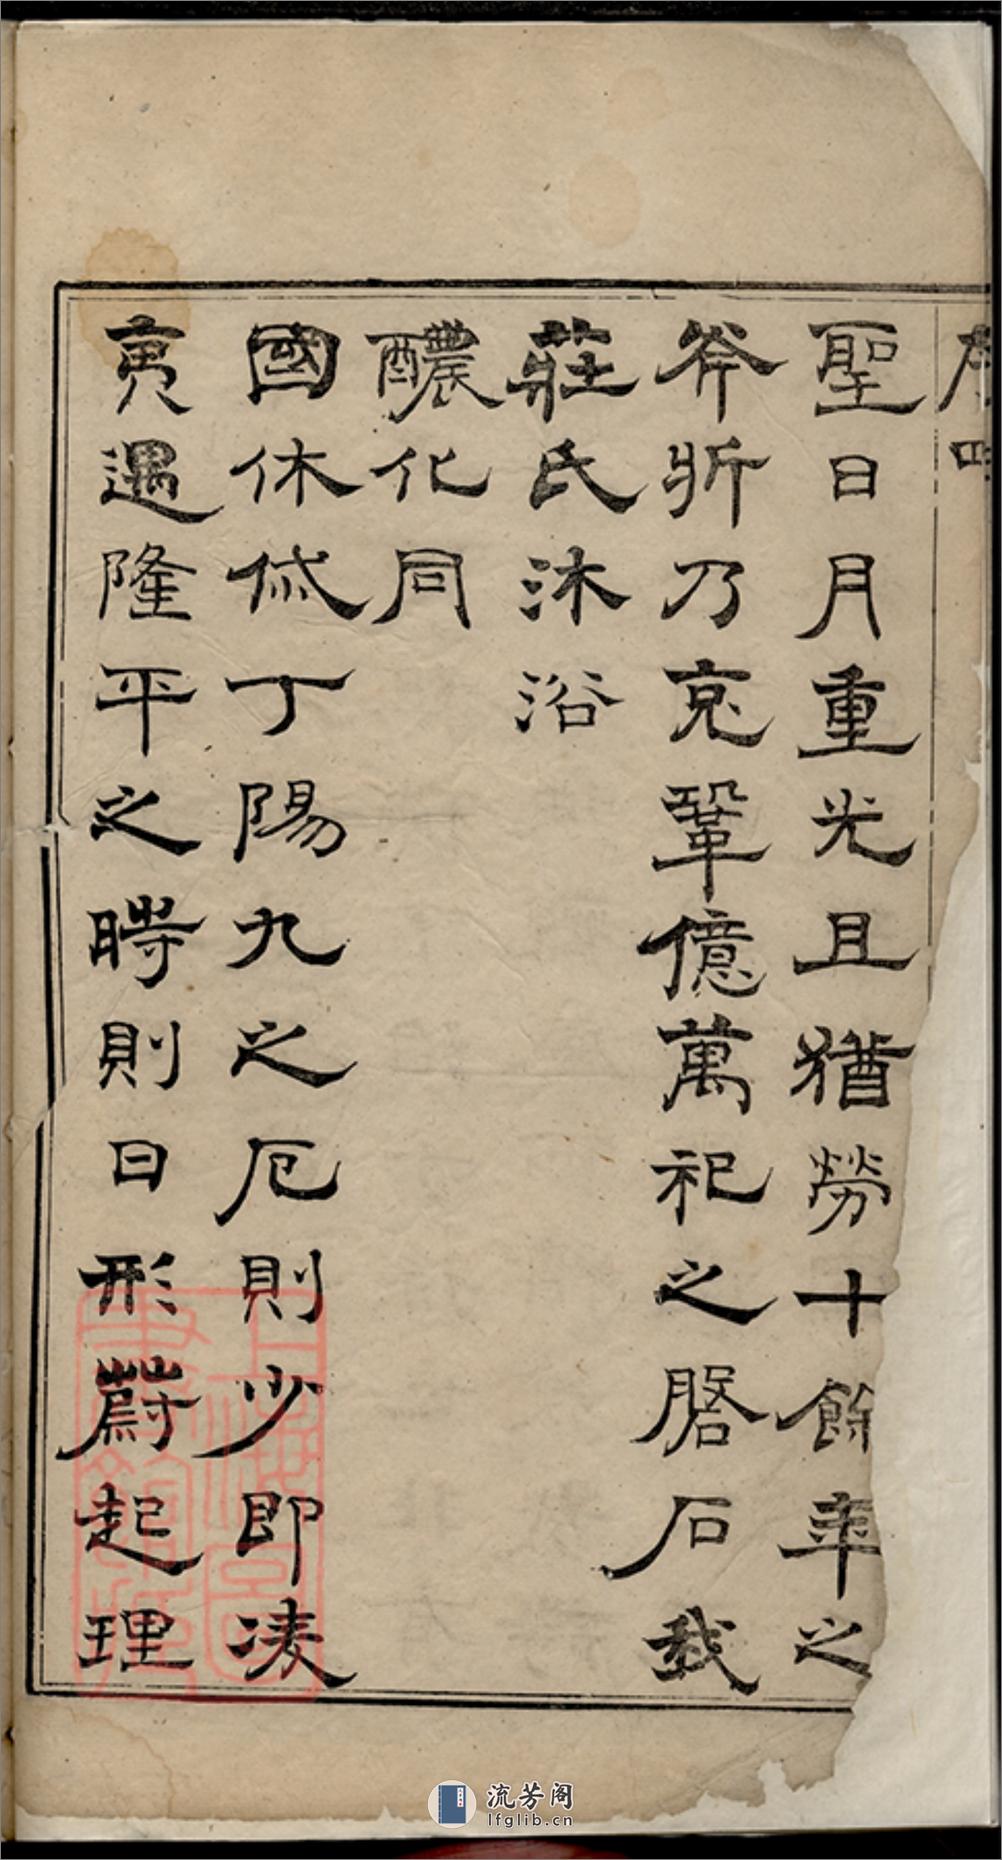 聖日月重光且猶勞十餘年之
斧斨乃克鞏億萬祀之磐石我
莊氏沐浴
醲化同
國休休丁陽九之厄則少即凌
夷遇隆平之時則日形蔚起理
流芳阁
lfglib.cn